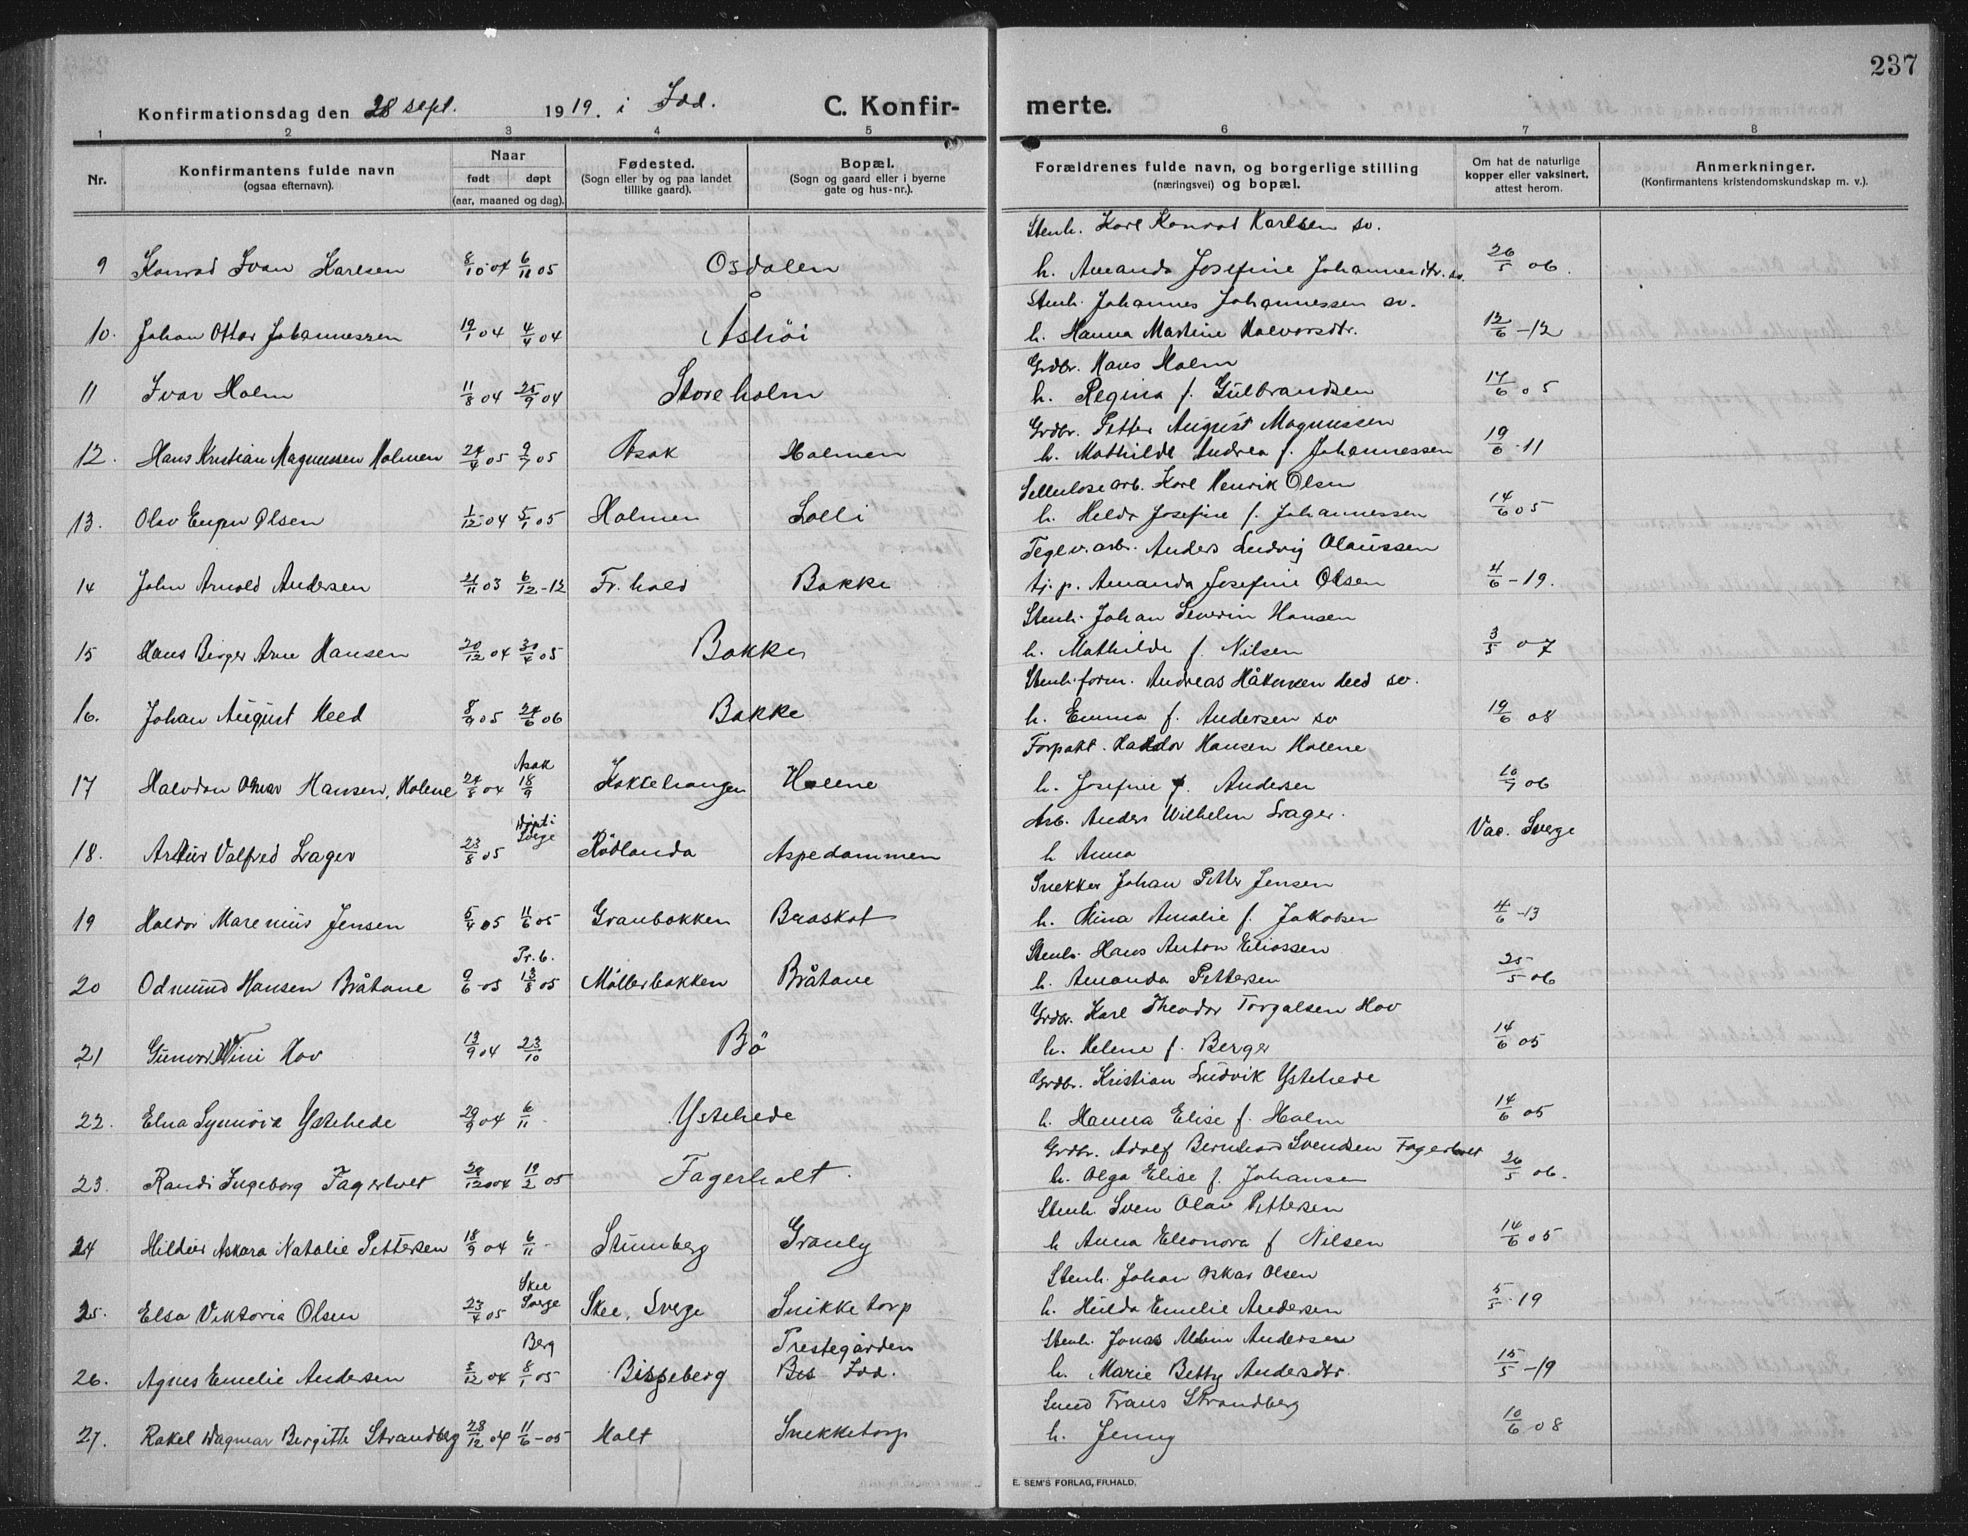 237
Konfirmationsdag den 28 sept. 1919. i Idd. C. Konfir- merte.
1 2 3 4 5 6 7 8
Nr. Konfirmantens fulde navn (ogsaa efternavn). Naar født døpt (aar, maaned og dag). Fødested. (Sogn eller by og paa landet tillike gaard). Bopæl. (Sogn og gaard eller i byerne gate og hus-nr.). Forældrenes fulde navn, og borgerlige stilling (næringsvei) og bopæl. Om hat de naturlige kopper eller vaksinert, attest herom. Anmerkninger. (Konfirmantens kristendomskundskap m. v.).
Stenh. Karl Konrad Karlsen sv.
9 Konrad Ivan Karlsen 8/10 04 6/11 05 Osdalen h. Amanda Josefine Johannesdtr. sv. 26/5 06.
Stenh. Johannes Johannessen sv.
10. Johan Ottar Johannessen 19/1 04 4/4 04 Åshöi h. Hanna Martine Halvorsdtr. 12/6 - 12
Grdbr. Hans Holm
11 Ivar Holm 11/8 04 25/9 04 Store holm h. Regina f. Gulbrandsen 17/6 05
Grdbr. Petter August Magnussen
12. Hans Kristian Magnussen Holmen 24/4 05 9/7 05 Asak Holmen h. Mathilde Andrea f. Johannessen 19/6 - 11
Sellulosearb. Karl Henrik Olsen
13. Olav Eugen Olsen 1/12 04 5/1 05 Holmen Lolli h. Hilda Josefine f. Johannessen 14/6 05
Teglv. arb. Anders Ludvig Olaussen
14 John Arnold Andersen 21/11 03 6/12 - 12 Fr. hald Bakke tj. p. Amanda Josefine Olsen 4/6 - 19.
Stenh. Johan Severin Hansen
15 Hans Birger Arne Hansen 20/12 04 30/4 05 Bakke h. Mathilde f. Nilsen 3/5 07
Stenh. form. Andreas Håkonsen Heed sv.
16. Johan August Heed 8/9 05 24/6 06 Bakke h. Emma f. Andersen sv 19/6 08
Forpakt. Haldor Hansen Holene
17 Halvdan Hansen, Holene 24/8 04 Asak 18/9 Kokkehaugen Holene h. Josefine f. Andersen 10/7 06
Arb. Anders Wilhelm Lager.
18. Artur Valfred Lager 23/8 05 Döpt i Sverge Rödlanda Aspedammen h Anna Vac. Sverge
Snekker Johan Petter Jensen
19 Haldor Marenius Jensen 5/4 05 11/6 05 Granbakken Braskot h. Mina Amalie f. Jakobsen 4/6 - 13
Stenh. Hans Anton Eliassen
20 Odmund Hansen Bråtane 9/6 - 05 Pr. b. 13/8 05 Möllerbakken Bråtane h. Amanda Pettersen 25/5 06
Grdbr. Karl Theodor Torgalsen Hov
21 Gunvor Wini Hov 13/9 04 23/10 Bö h. Helene f. Berger 14/6 05
Grdbr. Kristian Ludvik Ystehede
22. Elna Synnöve Ystehede 29/9 04 6/11 Ystehede h. Hanna Elise f. Holm 14/6 05
Grdbr. Adolf Bernhard Svendsen Fagerholt
23. Randi Ingeborg Fagerholt 24/12 04 19/2 05 Fagerholt. h. Olga Elise f. Johansen 26/5 06.
Stenh. Sven Olav Pettersen
24 Hildur Askara Natalie Pettersen 18/9 04 6/11 - Stumberg Granly h Anna Eleonora f Nilsen 14/6 05
Stenh. Johan Oskar Olsen
25. Elsa Viktoria Olsen 23/4 05 Skee Sverge Skee, Sverge Snikketorp h. Hulda Emelie Andersen 5/5 - 19
Stenh. Jonas Albin Andersen
26. Agnes Emelie Andersen 2/12 04 Berg 8/1 05 Bisgeberg Prestegården Idd. h. Marie Betty Andersdtr. 15/5 - 19
Smed Frans Strandberg
27. Rakel Dagmar Bergitte Strandberg 28/12 04 11/6 - 05 Holt Snekketorp h. Jenny 10/6 08
E. SEM'S FORLAG, FR.HALD.